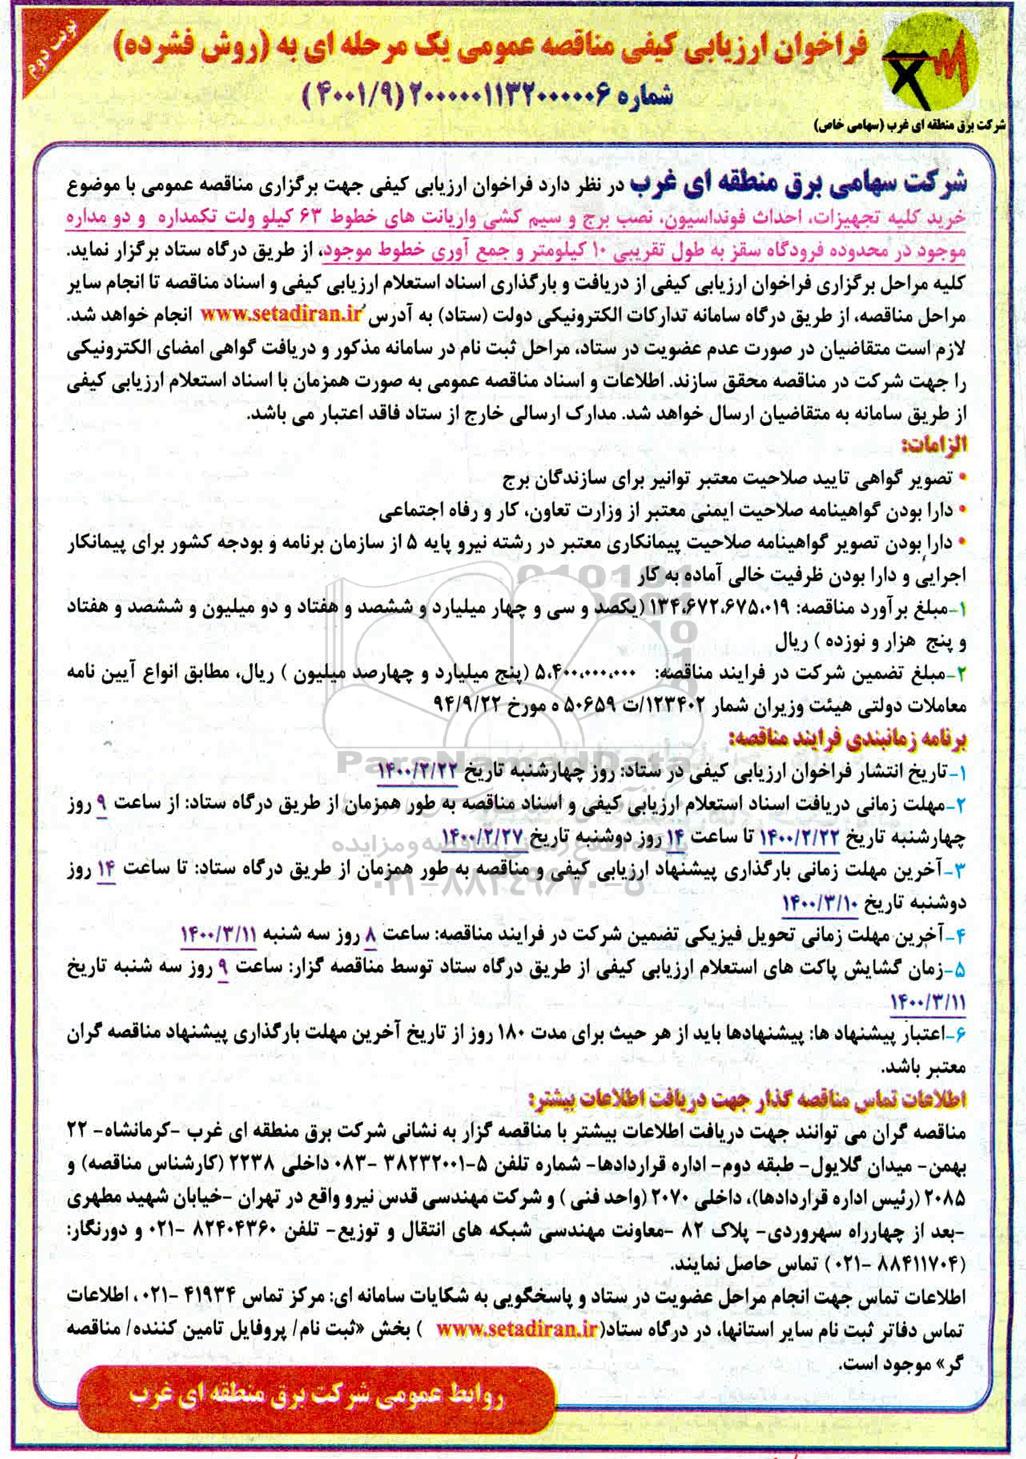 نوبت دوم
فراخوان ارزیابی کیفی مناقصه عمومی یک مرحله ای به (روش فشرده)
شماره ۲۰۰۰۰۰۱۱۳۲۰۰۰۰۰۶ (۴۰۰۱/۹)
شرکت برق منطقه ای غرب (سهامی خاص)
شرکت سهامی برق منطقه ای غرب در نظر دارد فراخوان ارزیابی کیفی جهت برگزاری مناقصه عمومی با موضوع
خرید کلیه تجهیزات، احداث فونداسیون، نصب برج و سیم کشی واریانت های خطوط ۶۳ کیلو ولت تکمداره و دو مداره
موجود در محدوده فرودگاه سقز به طول تقریبی ۱۰ کیلومتر و جمع آوری خطوط موجود، از طریق درگاه ستاد برگزار نماید.
کلیه مراحل برگزاری فراخوان ارزیابی کیفی از دریافت و بارگذاری اسناد استعلام ارزیابی کیفی و اسناد مناقصه تا انجام سایر
مراحل مناقصه، از طریق درگاه سامانه تدارکات الکترونیکی دولت (ستاد) به آدرس www.setadiran.ir انجام خواهد شد.
لازم است متقاضیان در صورت عدم عضویت در ستاد، مراحل ثبت نام در سامانه مذکور و دریافت گواهی امضای الکترونیکی
را جهت شرکت در مناقصه محقق سازند. اطلاعات و اسناد مناقصه عمومی به صورت همزمان با اسناد استعلام ارزیابی کیفی
از طریق سامانه به متقاضیان ارسال خواهد شد. مدارک ارسالی خارج از ستاد فاقد اعتبار می باشد.
الزامات:
• تصویر گواهی تایید صلاحیت معتبر توانیر برای سازندگان برج
• دارا بودن گواهینامه صلاحیت ایمنی معتبر از وزارت تعاون، کار و رفاه اجتماعی
• دارا بودن تصویر گواهینامه صلاحیت پیمانکاری معتبر در رشته نیرو پایه ۵ از سازمان برنامه و بودجه کشور برای پیمانکار
اجرایی و دارا بودن ظرفیت خالی آماده به کار
۱-مبلغ برآورد مناقصه: ۱۳۴،۶۷۲،۶۷۵،۰۱۹ (یکصد و سی و چهار میلیارد و ششصد و هفتاد و دو میلیون و ششصد و هفتاد
و پنج هزار و نوزده ) ریال
۲-مبلغ تضمین شرکت در فرایند مناقصه: ۵،۴۰۰،۰۰۰،۰۰۰ (پنج میلیارد و چهارصد میلیون ) ریال، مطابق انواع آیین نامه
معاملات دولتی هیئت وزیران شمار ۱۲۳۴۰۲/ت ۵۰۶۵۹ ه مورخ ۹۴/۹/۲۲
برنامه زمانبندی فرایند مناقصه:
۱-تاریخ انتشار فراخوان ارزیابی کیفی در ستاد: روز چهارشنبه تاریخ ۱۴۰۰/۲/۲۲
۲-مهلت زمانی دریافت اسناد استعلام ارزیابی کیفی و اسناد مناقصه به طور همزمان از طریق درگاه ستاد: از ساعت ۹ روز
چهارشنبه تاریخ ۱۴۰۰/۲/۲۲ تا ساعت ۱۴ روز دوشنبه تاریخ ۱۴۰۰/۲/۲۷
۳-آخرین مهلت زمانی بارگذاری پیشنهاد ارزیابی کیفی و مناقصه به طور همزمان از طریق درگاه ستاد: تا ساعت ۱۴ روز
دوشنبه تاریخ ۱۴۰۰/۳/۱۰
۴-آخرین مهلت زمانی تحویل فیزیکی تضمین شرکت در فرایند مناقصه: ساعت ۸ روز سه شنبه ۱۴۰۰/۳/۱۱
۵-زمان گشایش پاکت های استعلام ارزیابی کیفی از طریق درگاه ستاد توسط مناقصه گزار: ساعت ۹ روز سه شنبه تاریخ
۱۴۰۰/۳/۱۱
۶-اعتبار پیشنهاد ها: پیشنهادها باید از هر حیث برای مدت ۱۸۰ روز از تاریخ آخرین مهلت بارگذاری پیشنهاد مناقصه گران
معتبر باشد.
اطلاعات تماس مناقصه گذار جهت دریافت اطلاعات بیشتر:
مناقصه گران می توانند جهت دریافت اطلاعات بیشتر با مناقصه گزار به نشانی شرکت برق منطقه ای غرب -کرمانشاه- ۲۲
بهمن- میدان گلایول- طبقه دوم- اداره قراردادها- شماره تلفن ۵-۳۸۲۳۲۰۰۱ -۰۸۳ داخلی ۲۲۳۸ (کارشناس مناقصه) و
۲۰۸۵ (رئیس اداره قراردادها)، داخلی ۲۰۷۰ (واحد فنی ) و شرکت مهندسی قدس نیرو واقع در تهران -خیابان شهید مطهری
-بعد از چهارراه سهروردی- پلاک ۸۲ -معاونت مهندسی شبکه های انتقال و توزیع- تلفن ۸۲۴۰۴۳۶۰ -۰۲۱ و دورنگار:
(۸۸۴۱۱۷۰۴ -۰۲۱) تماس حاصل نمایند.
اطلاعات تماس جهت انجام مراحل عضویت در ستاد و پاسخگویی به شکایات سامانه ای: مرکز تماس ۴۱۹۳۴ -۰۲۱، اطلاعات
تماس دفاتر ثبت نام سایر استانها، در درگاه ستاد(www.setadiran.ir ) بخش «ثبت نام/ پروفایل تامین کننده/ مناقصه
گر» موجود است.
روابط عمومی شرکت برق منطقه ای غرب
ParsNamadData
۰۲۱-۸۸۳۴۹۶۷۰-۵